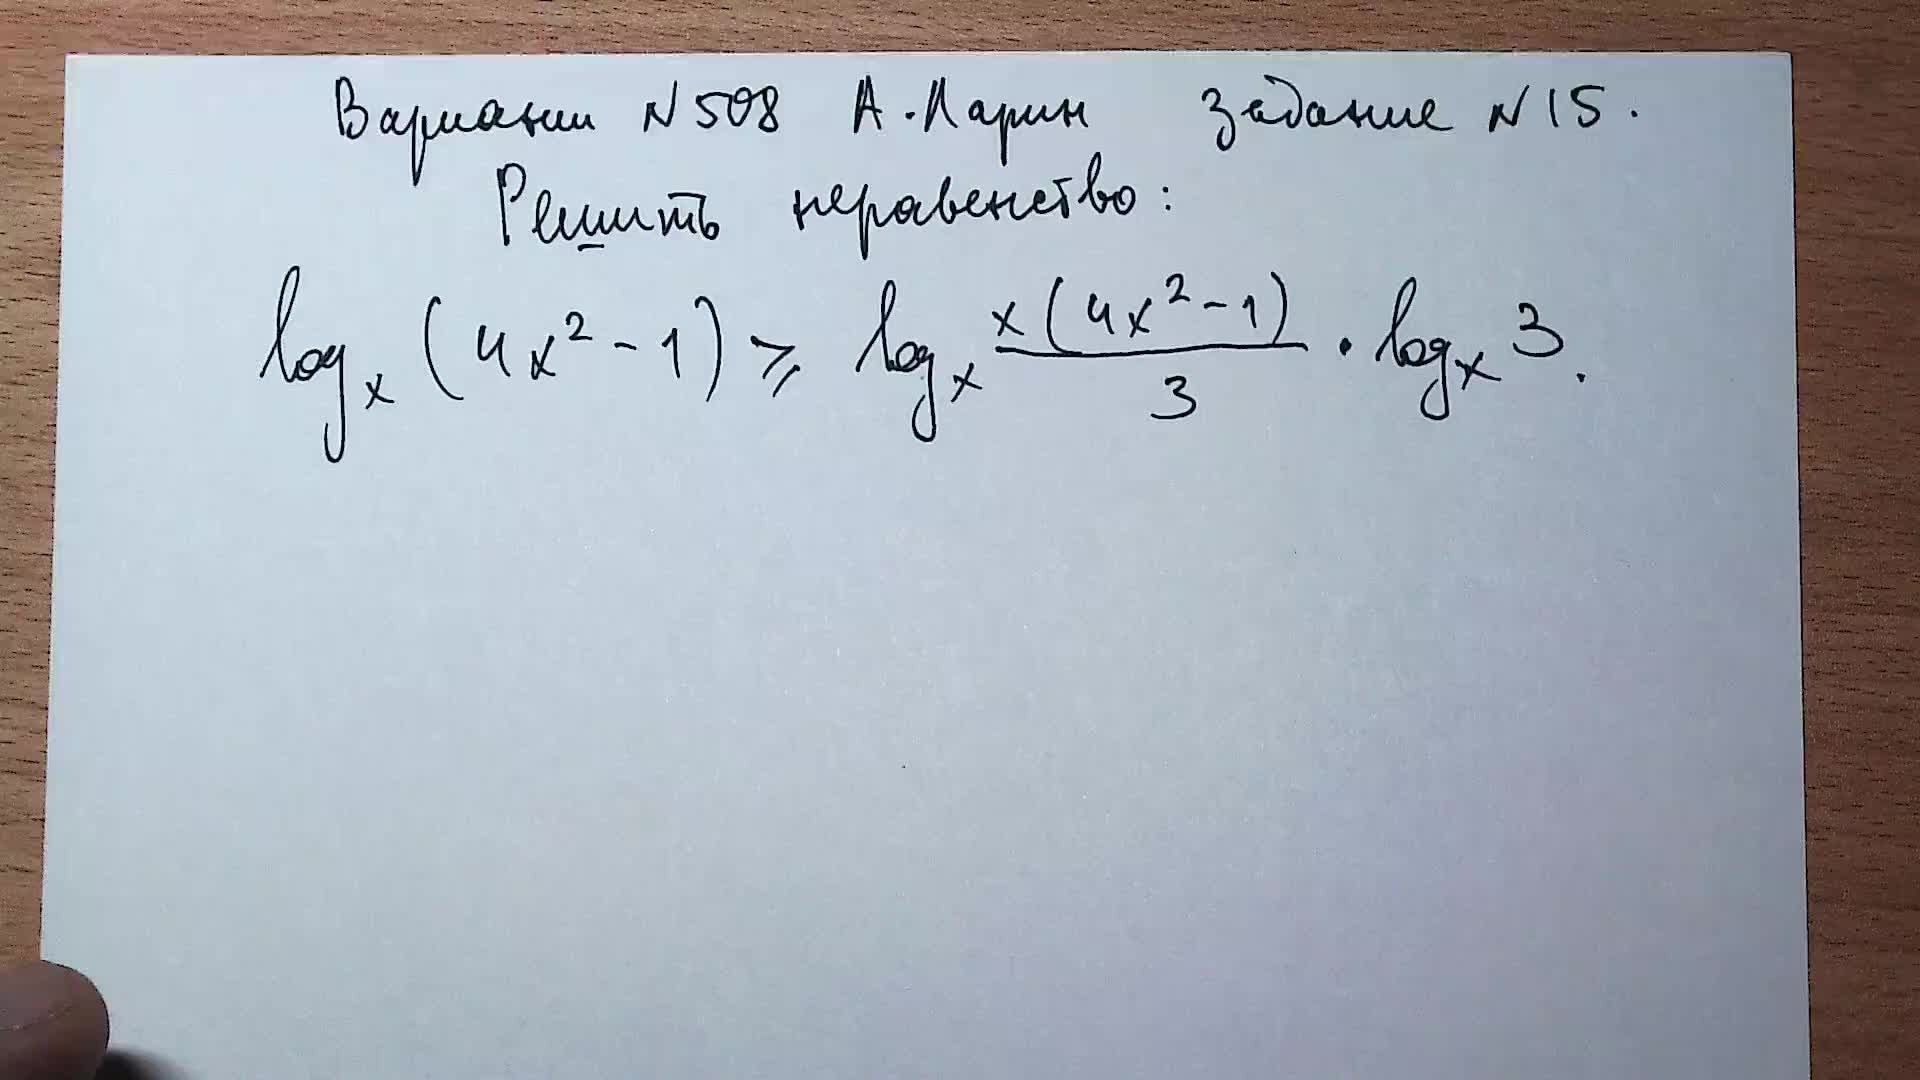 Вариант N508 А.Ларин Задание N15.
Решить неравенство:
log_x (4x² - 1) ⩾ log_x x(4x² - 1)/3 · log_x 3.